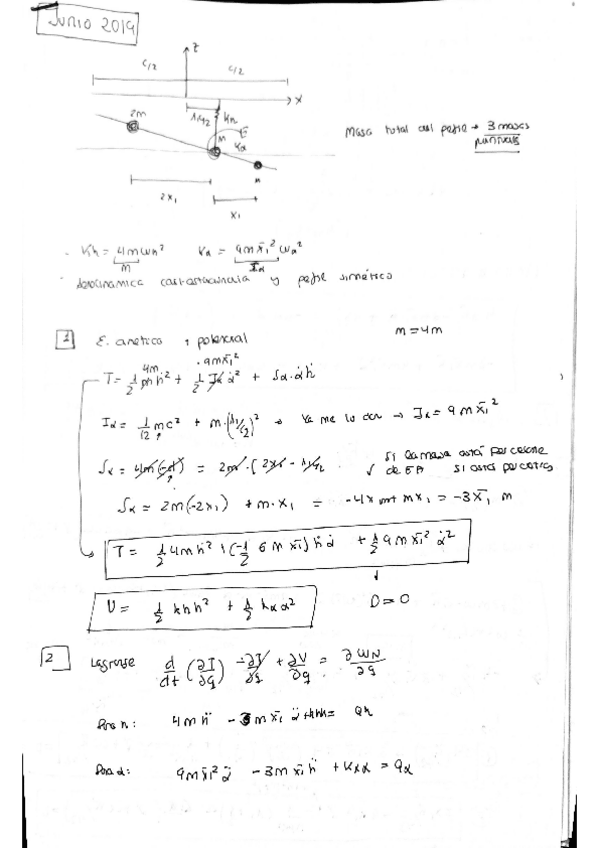 JUNIO 2019
z
c/2 c/2
x
2m x1/2 Kh
M Kα
m
Masa total del perfil → 3 masas
puntuales
2x₁
x₁
- Kh = 4mωh² Kα = 9mx̄₁²ωα²
m Iα
- Aerodinámica casi-estacionaria y perfil simétrico
1 E. cinética y potencial m = 4m
4m · 9mx̄₁²
T = 1/2 ṁḣ² + 1/2 Iα α̇² + Sα·α̇ḣ
Iα = 1/12 mc² + m·(x1/2)² → Ya me lo dan → Iα = 9mx̄₁²
Sα = 4m(-d) = 2m·(2x₁ - x1/2
Si la masa está por delante
de EA si está por detrás
Sα = 2m(-2x₁) + m·x₁ = -4x₁m + mx₁ = -3x̄₁ m
T = 1/2 4mḣ² + (-1/2 6mx̄₁)ḣα̇ + 1/2 9mx̄₁² α̇²
U = 1/2 khh² + 1/2 kαα² D = 0
2 Lagrange d/dt (∂T/∂q̇) - ∂T/∂q + ∂V/∂q = ∂WN/∂q
Para h: 4mḧ - 3mx̄₁ α̈ + khh = Qh
Para α: 9mx̄₁² α̈ - 3mx̄₁ḧ + Kαα = Qα